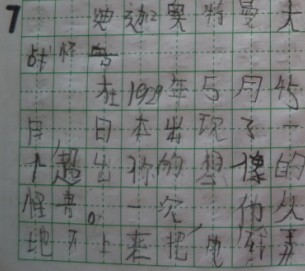 7
迪迦奥特曼大
战怪兽
在1929年5月45
月日本出现了一
个超出你的想像的
怪青。一穴他久
地下上来把电